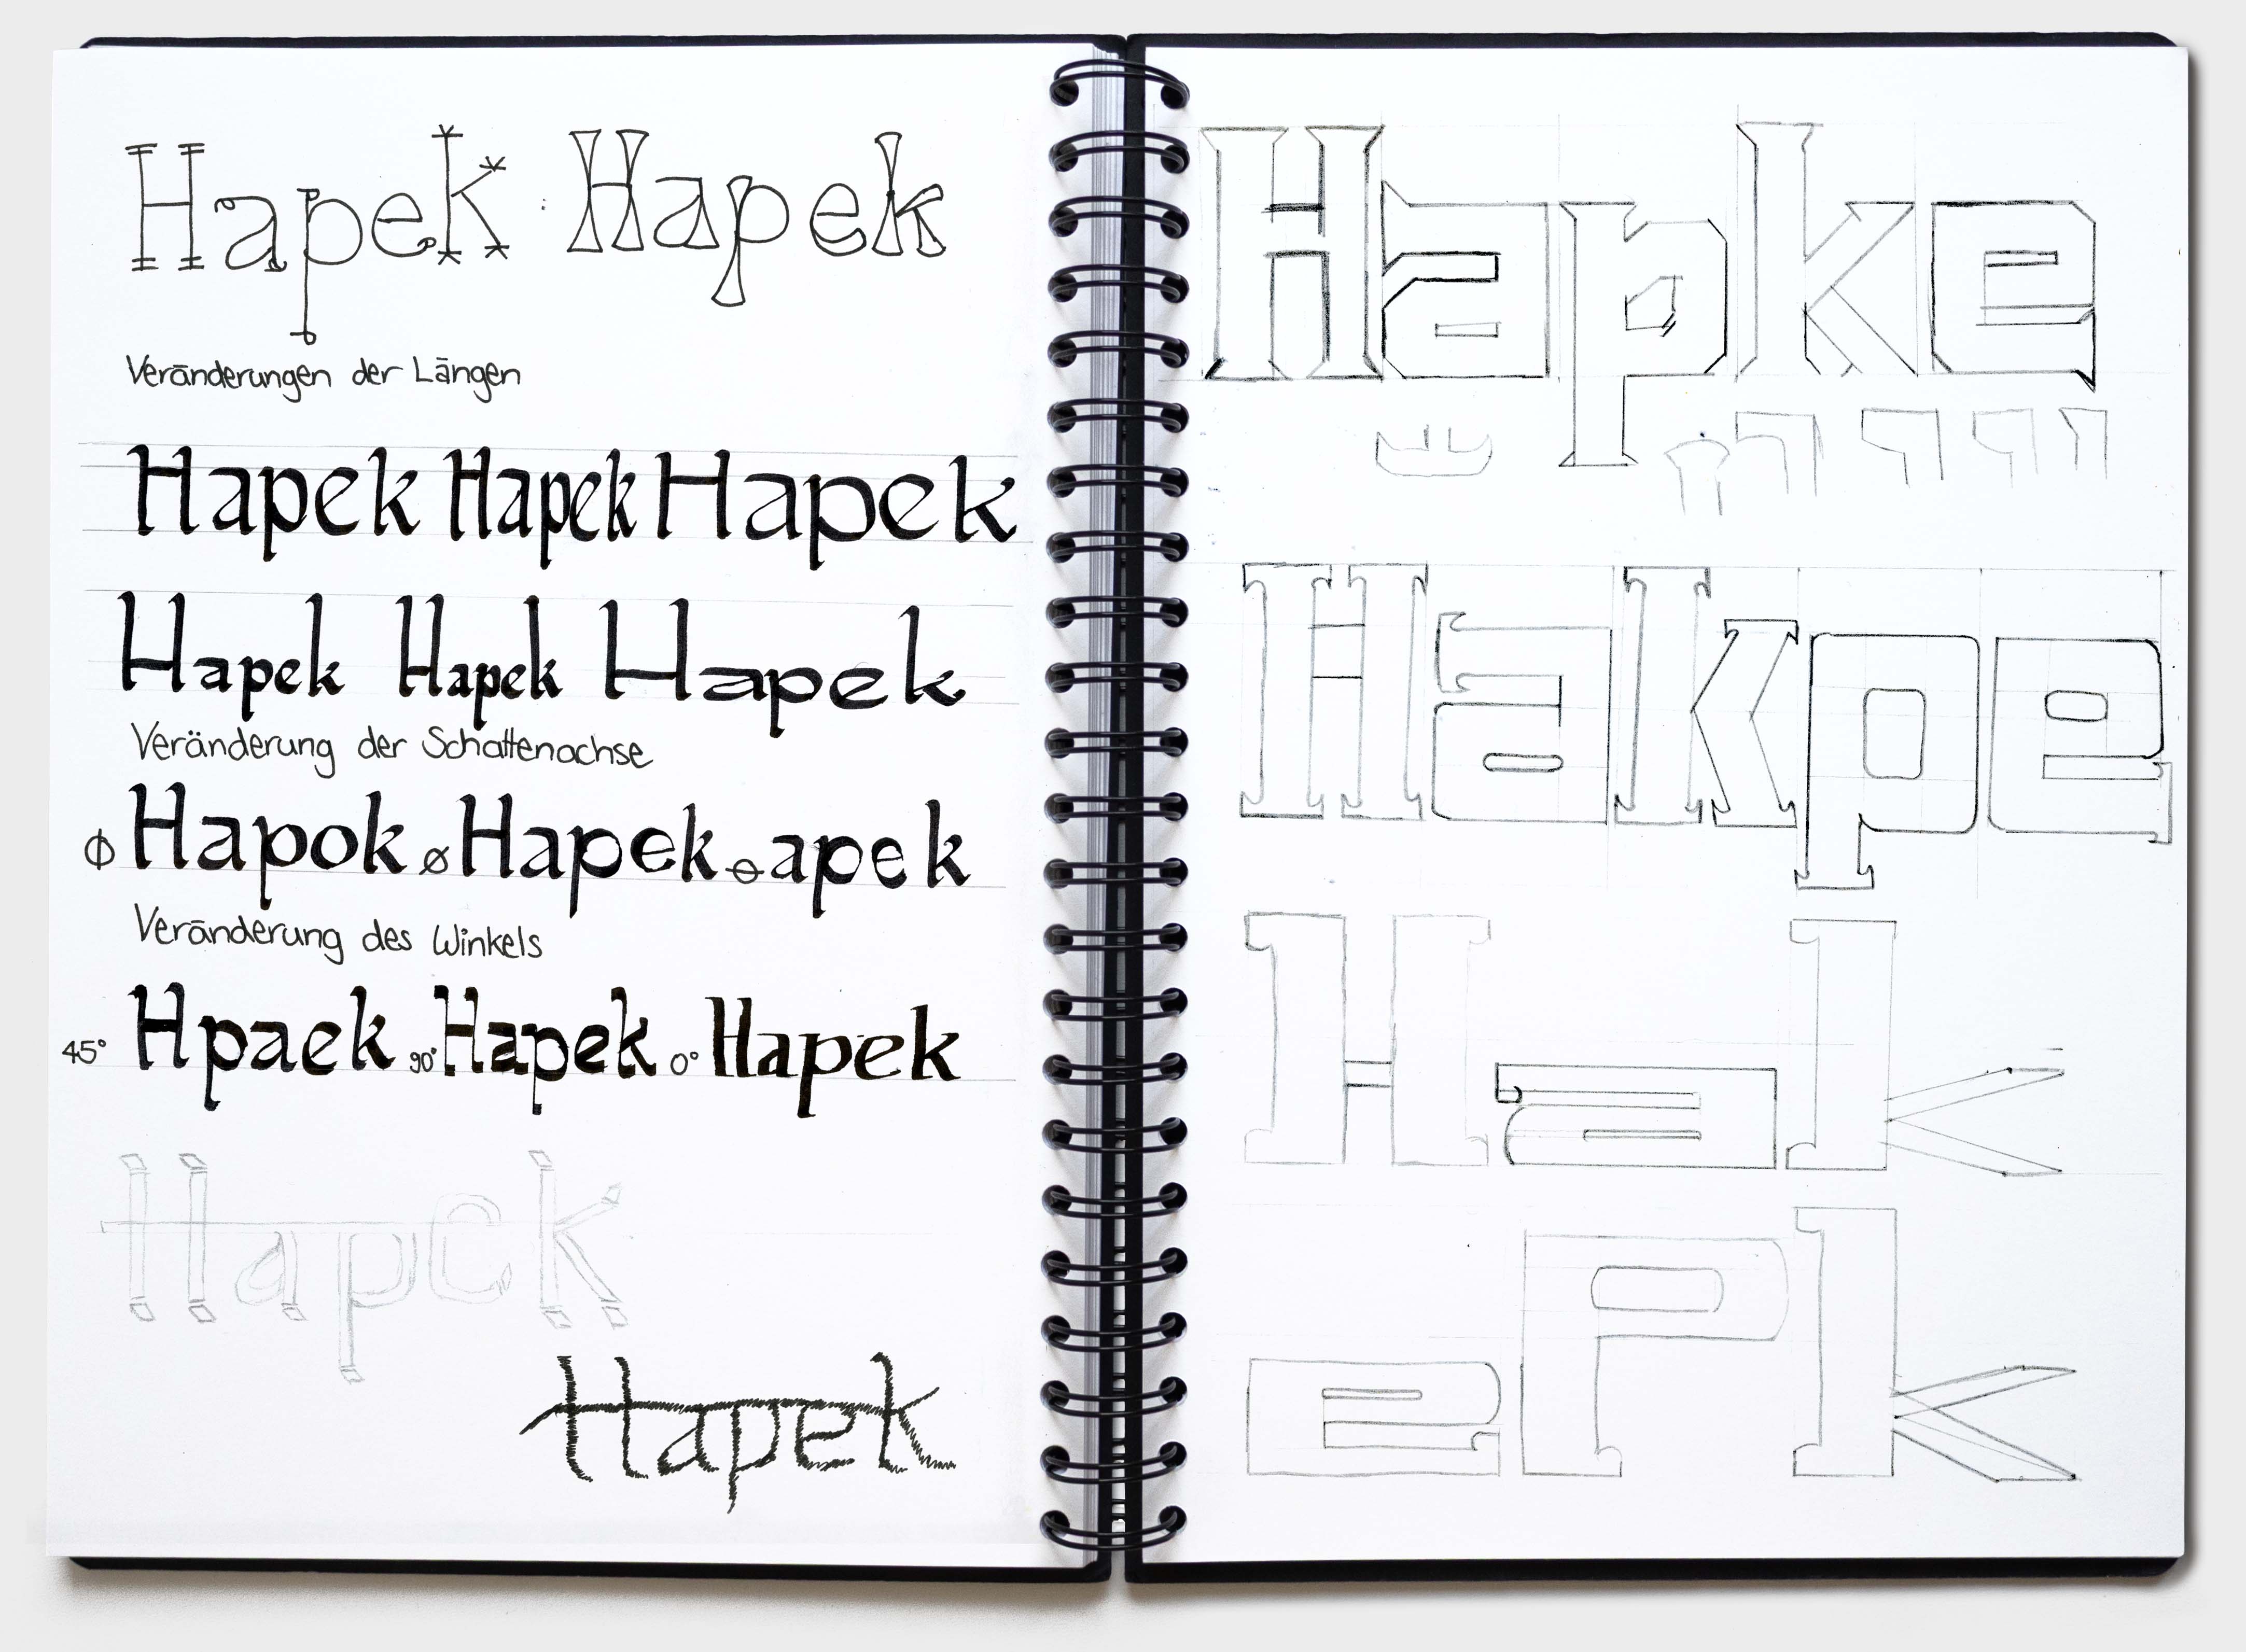 Hapek Hapek
Veränderungen der Längen
Hapek Hapek Hapek
Hapek Hapek Hapek
Veränderung der Schattenachse
Hapok Hapek apek
Veränderung des Winkels
45° Hpaek 90° Hapek 0° Hapek
Hapek
Hapek
Hapke
Hakpe
Hak
ePk